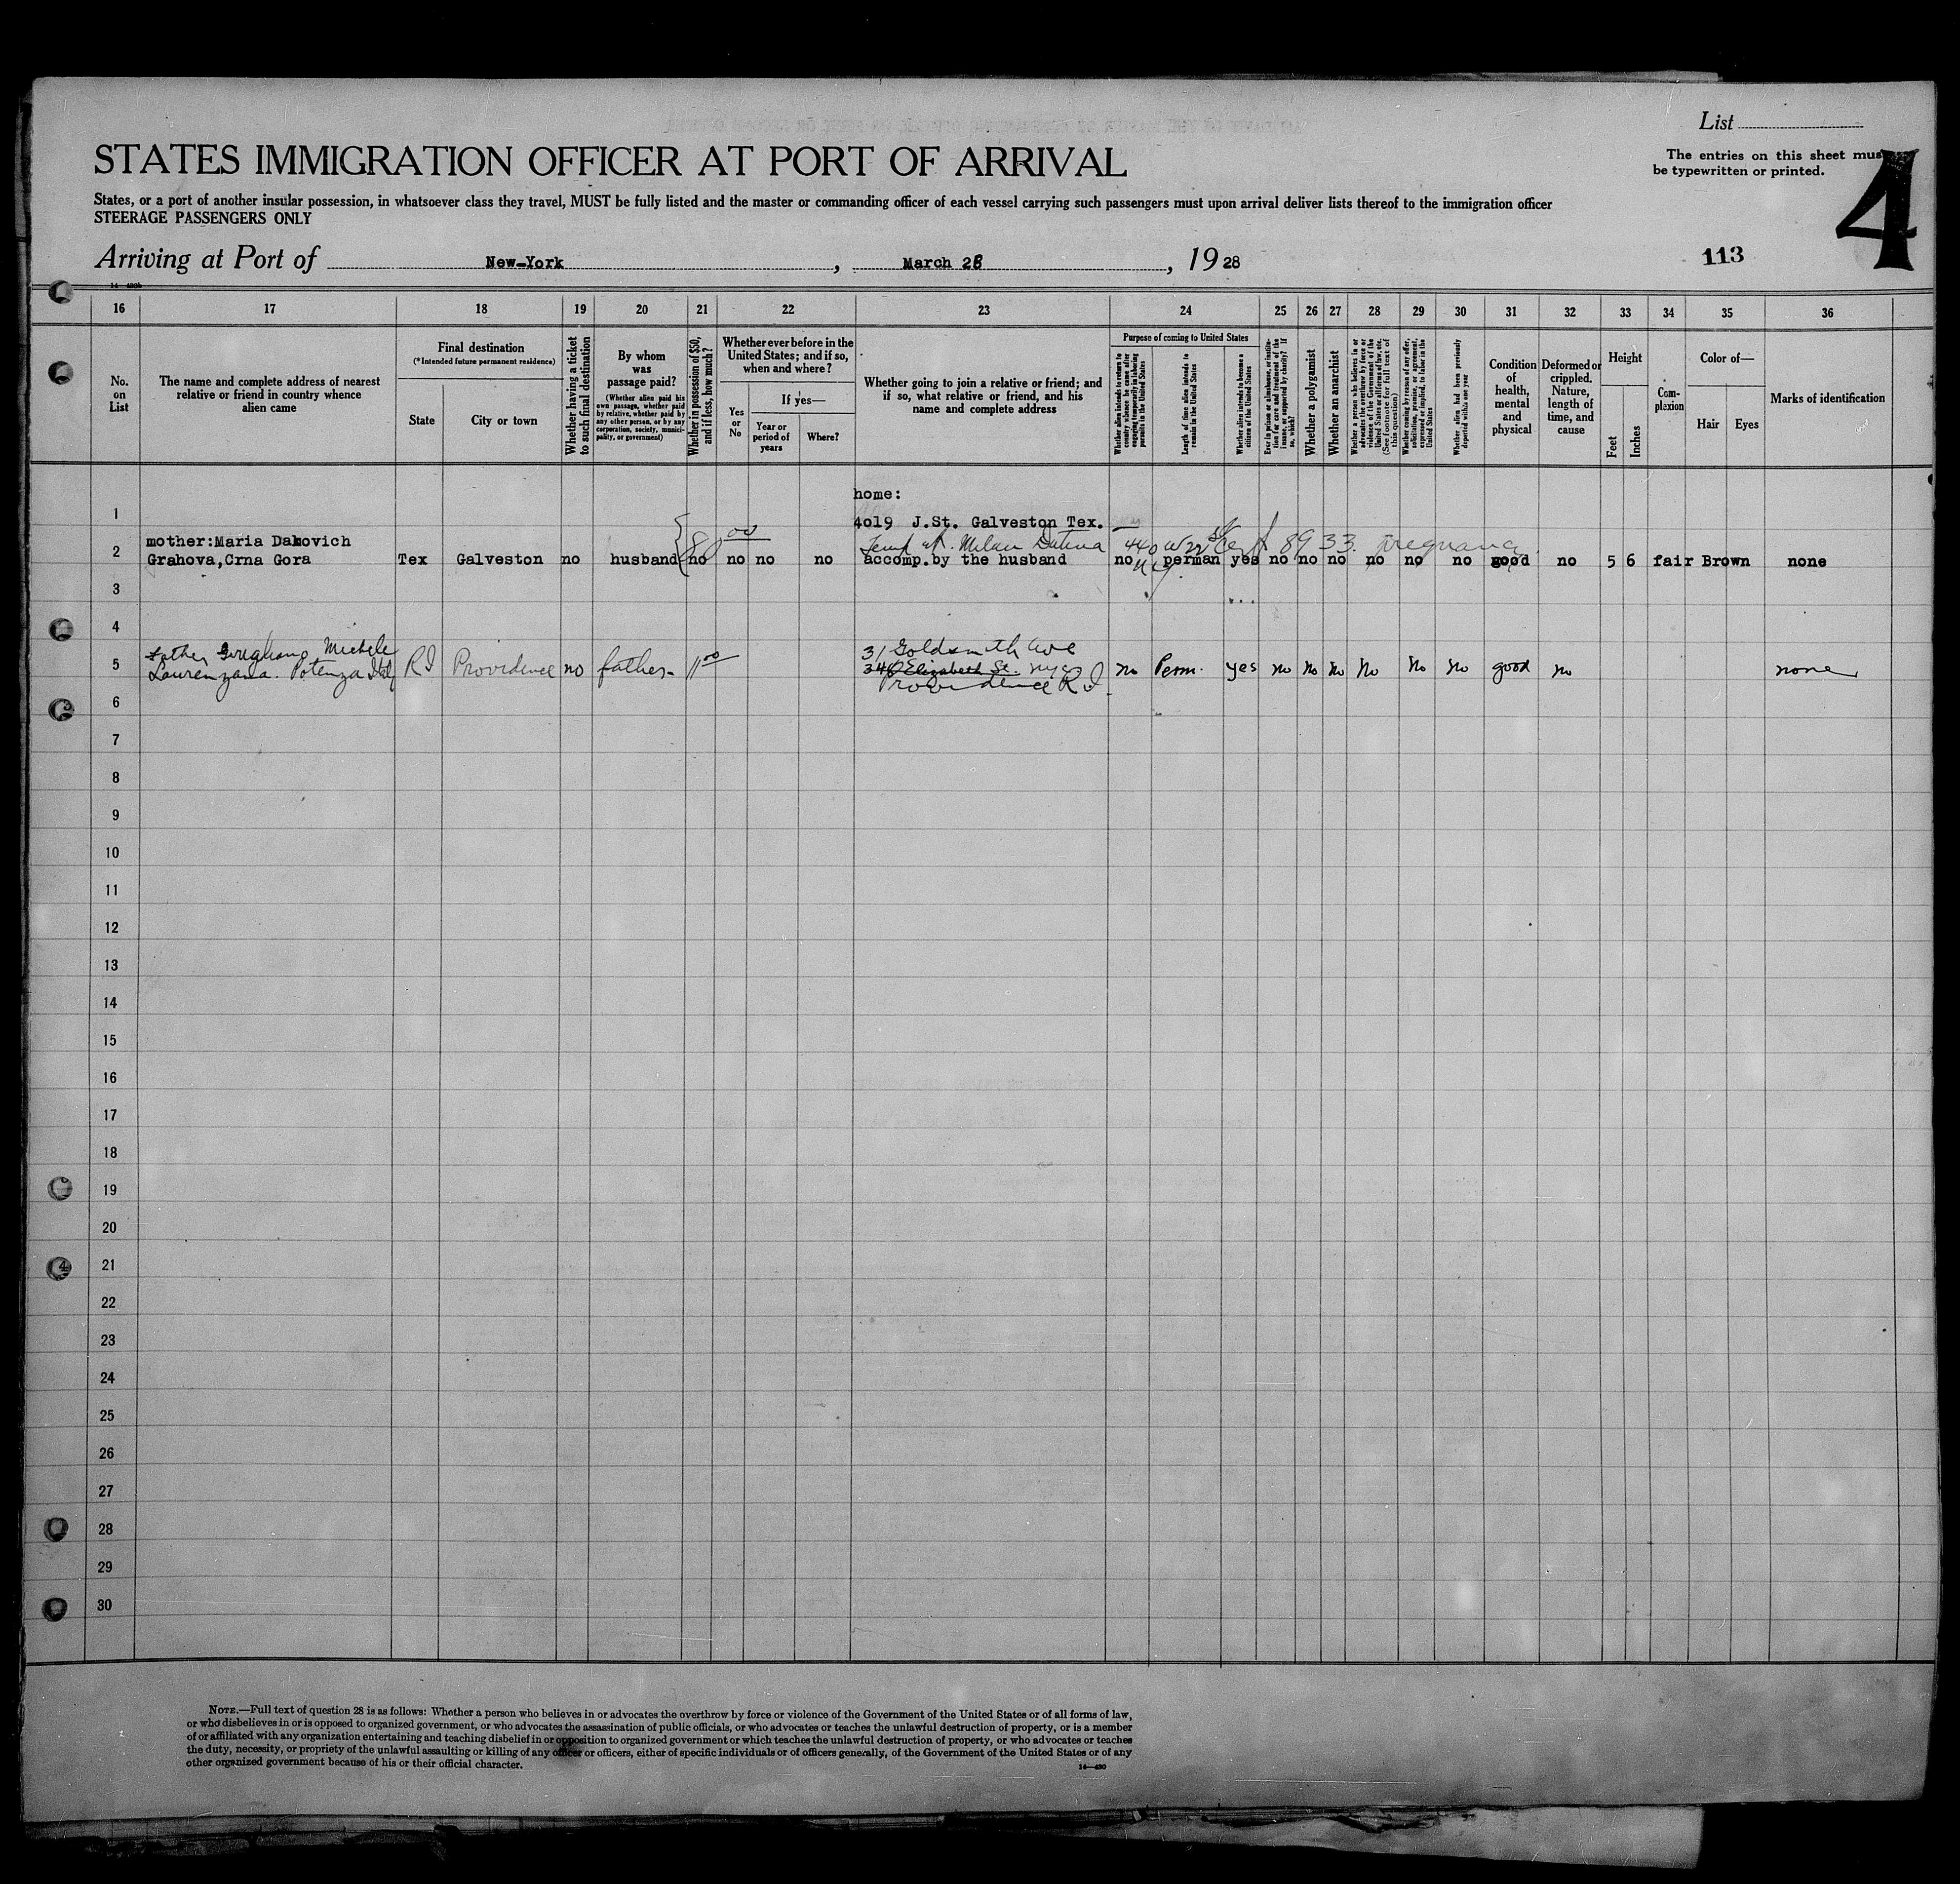 List
The entries on this sheet must
be typewritten or printed.
4
STATES IMMIGRATION OFFICER AT PORT OF ARRIVAL
States, or a port of another insular possession, in whatsoever class they travel, MUST be fully listed and the master or commanding officer of each vessel carrying such passengers must upon arrival deliver lists thereof to the immigration officer
STEERAGE PASSENGERS ONLY
Arriving at Port of New-York, March 28, 1928
113
16 17 18 19 20 21 22 23 24 25 26 27 28 29 30 31 32 33 34 35 36
No. on List
The name and complete address of nearest relative or friend in country whence alien came
Final destination
(*Intended future permanent residence)
State
City or town
Whether having a ticket to such final destination
By whom was passage paid?
(Whether alien paid his own passage, whether paid by relative, whether paid by any other person, or by any corporation, society, municipality, or government)
Whether in possession of $50, and if less, how much?
Whether ever before in the United States; and if so, when and where?
Yes or No
If yes—
Year or period of years
Where?
Whether going to join a relative or friend; and if so, what relative or friend, and his name and complete address
Purpose of coming to United States
Whether alien intends to return to country whence he came after engaging temporarily in laboring pursuits in the United States
Length of time alien intends to remain in the United States
Whether alien intends to become a citizen of the United States
Ever in prison or almshouse, or institution for care and treatment of the insane, or supported by charity? If so, which?
Whether a polygamist
Whether an anarchist
Whether a person who believes in or advocates the overthrow by force or violence of the Government of the United States or all forms of law, etc. (See footnote for full text of this question)
Whether coming by reason of any offer, solicitation, promise, or agreement, expressed or implied, to labor in the United States
Whether alien had been previously deported within one year
Condition of health, mental and physical
Deformed or crippled. Nature, length of time, and cause
Height
Feet
Inches
Complexion
Color of—
Hair
Eyes
Marks of identification
home:
1 4019 J.St. Galveston Tex.
mother:Maria Dakovich
440 W 22 St Cert 8933. pregnancy
2 Grahova,Crna Gora Tex Galveston no husband no no no no accomp.by the husband no perman yes no no no no no no good no 5 6 fair Brown none
3
4
father Michele 31 Goldsmith Ave
5 Laurenzana. Potenza Italy RI Providence no father 11 00 346 Elizabeth St. NYC no Perm. yes no no no no no no good no none
Providence R.I.
6
7
8
9
10
11
12
13
14
15
16
17
18
19
20
21
22
23
24
25
26
27
28
29
30
NOTE.—Full text of question 28 is as follows: Whether a person who believes in or advocates the overthrow by force or violence of the Government of the United States or of all forms of law,
or who disbelieves in or is opposed to organized government, or who advocates the assassination of public officials, or who advocates or teaches the unlawful destruction of property, or is a member
of or affiliated with any organization entertaining and teaching disbelief in or opposition to organized government or which teaches the unlawful destruction of property, or who advocates or teaches
the duty, necessity, or propriety of the unlawful assaulting or killing of any officer or officers, either of specific individuals or of officers generally, of the Government of the United States or of any
other organized government because of his or their official character.
14—430